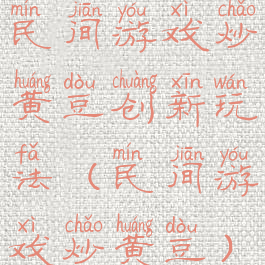 mín jiān yóu xì chǎo
民间游戏炒
huáng dòu chuàng xīn wán
黄豆创新玩
fǎ mín jiān yóu
法(民间游
xì chǎo huáng dòu
戏炒黄豆)